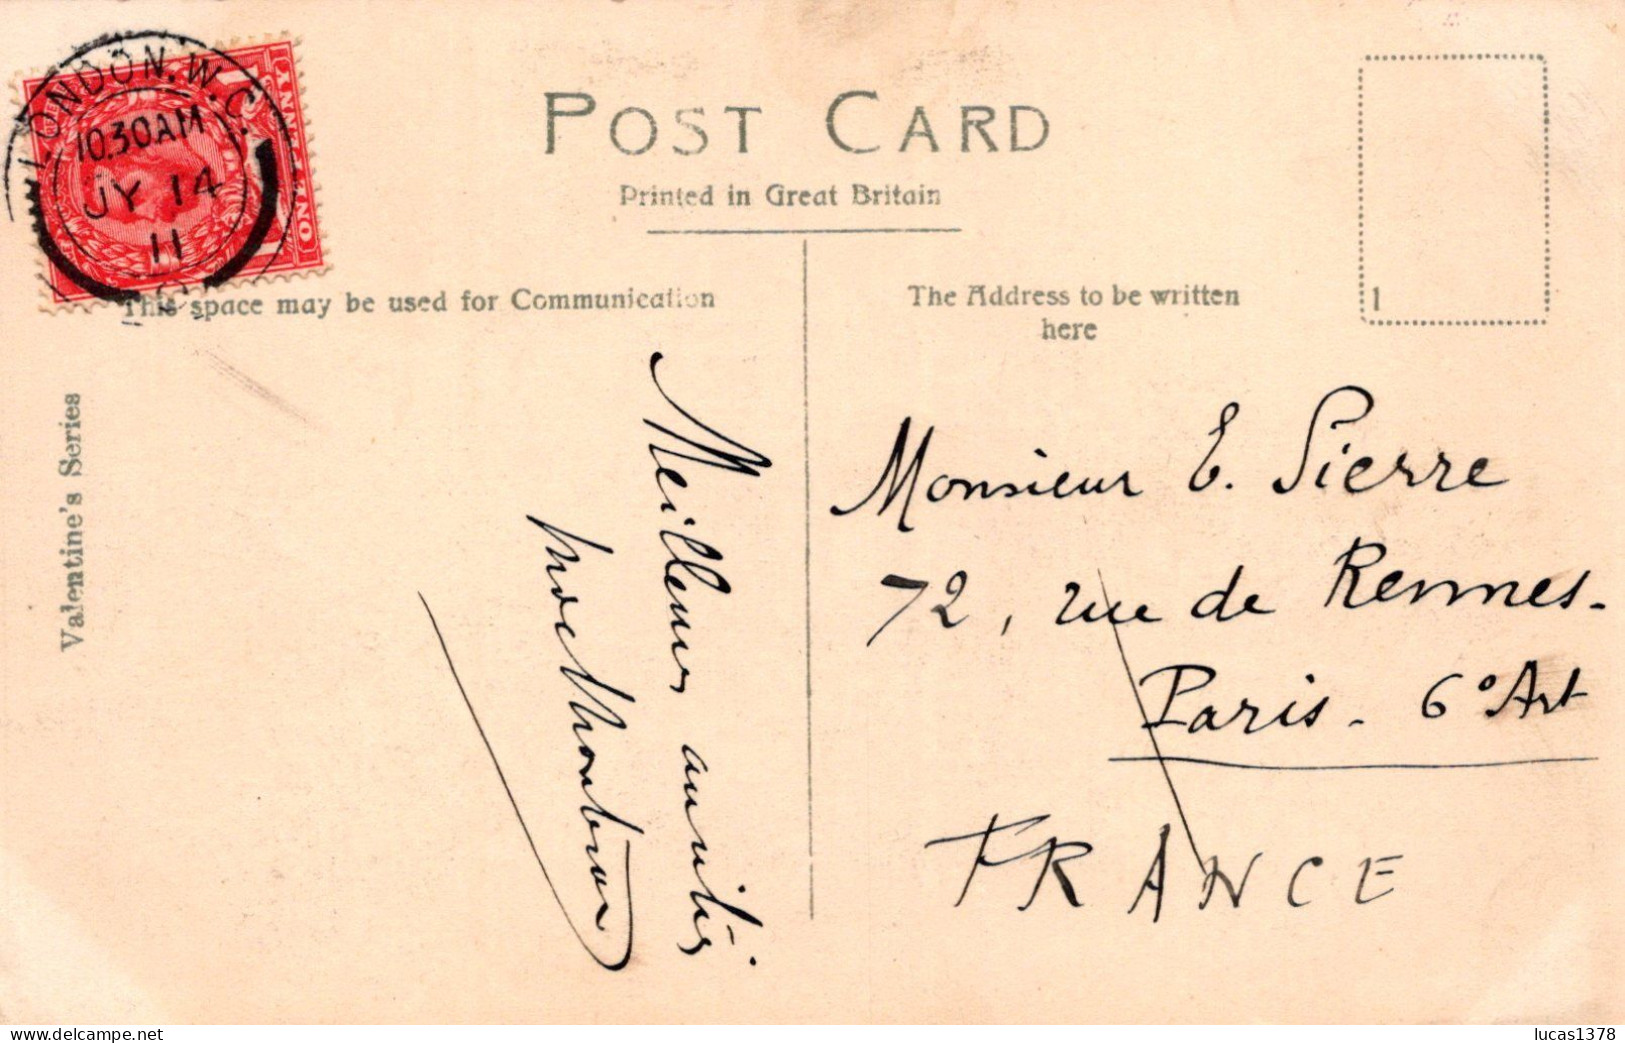 LONDON.W.C.
10.30AM
JY 14
11
POST CARD
Printed in Great Britain
This space may be used for Communication
The Address to be written
here
1
Valentine's Series
Meilleures amitiés
Monsieur E. Pierre
72, rue de Rennes.
Paris. 6° Art
FRANCE
lucas1378